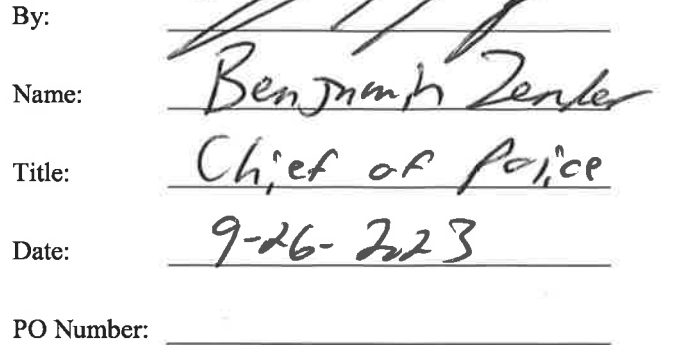 By:
Name: Benjamin Zenker
Title: Chief of Police
Date: 9-26-2023
PO Number: